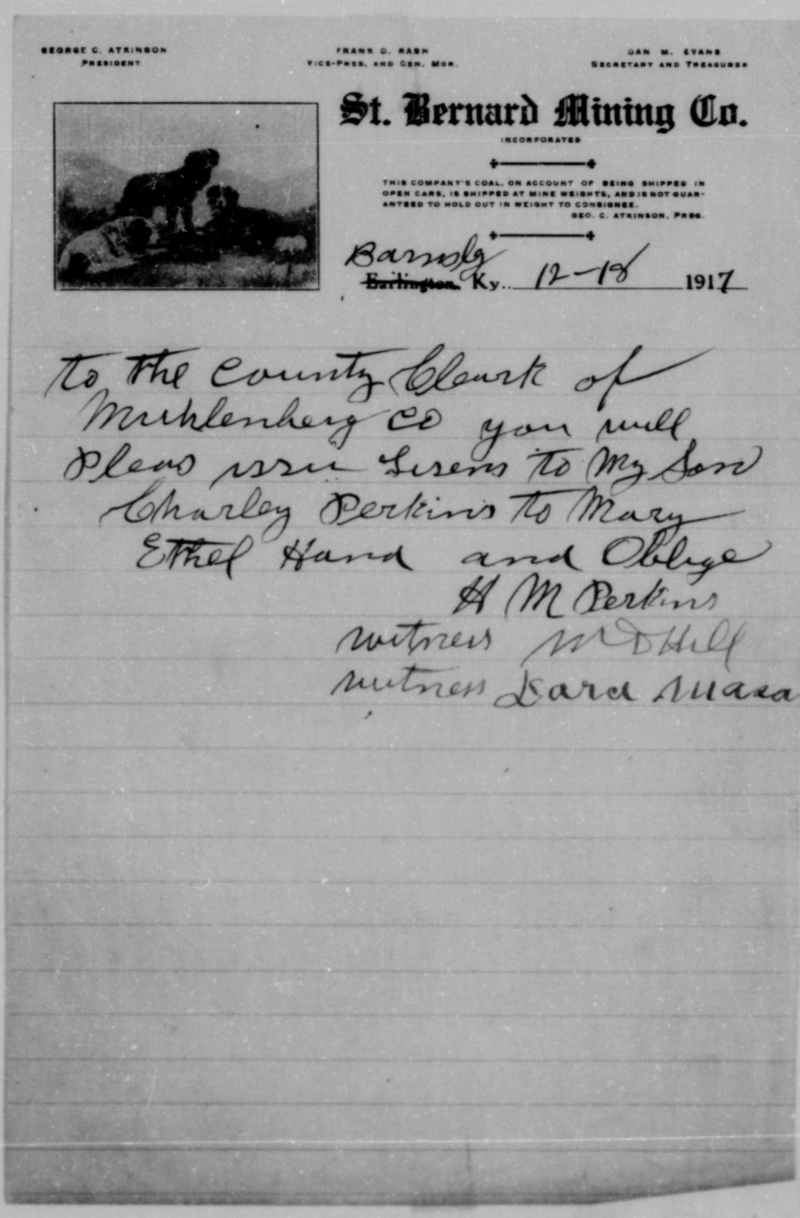 GEORGE C. ATKINSON
PRESIDENT
FRANK D. RASH
VICE-PRES. AND GEN. MGR.
DAN M. EVANS
SECRETARY AND TREASURER
St. Bernard Mining Co.
INCORPORATED
THIS COMPANY'S COAL, ON ACCOUNT OF BEING SHIPPED IN
OPEN CARS, IS SHIPPED AT MINE WEIGHTS, AND IS NOT GUAR-
ANTEED TO HOLD OUT IN WEIGHT TO CONSIGNEE.
GEO. C. ATKINSON, PRES.
Barnsly
Earlington, Ky. 12-18 1917
to the County Cleark of
Muhlenberg Co you will
Pleas issu Lisens to My Son
Charley Perkins to Mary
Ethel Hand and Oblige
H M Perkins
witness Hill
witness